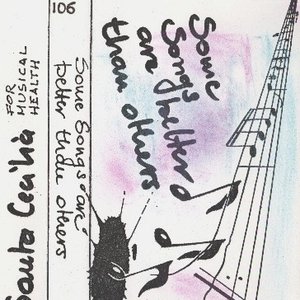 106
Santa Cecilia
FOR
MUSICAL
HEALTH
Some Songs are
better than others
Some
Songs
are better
than others